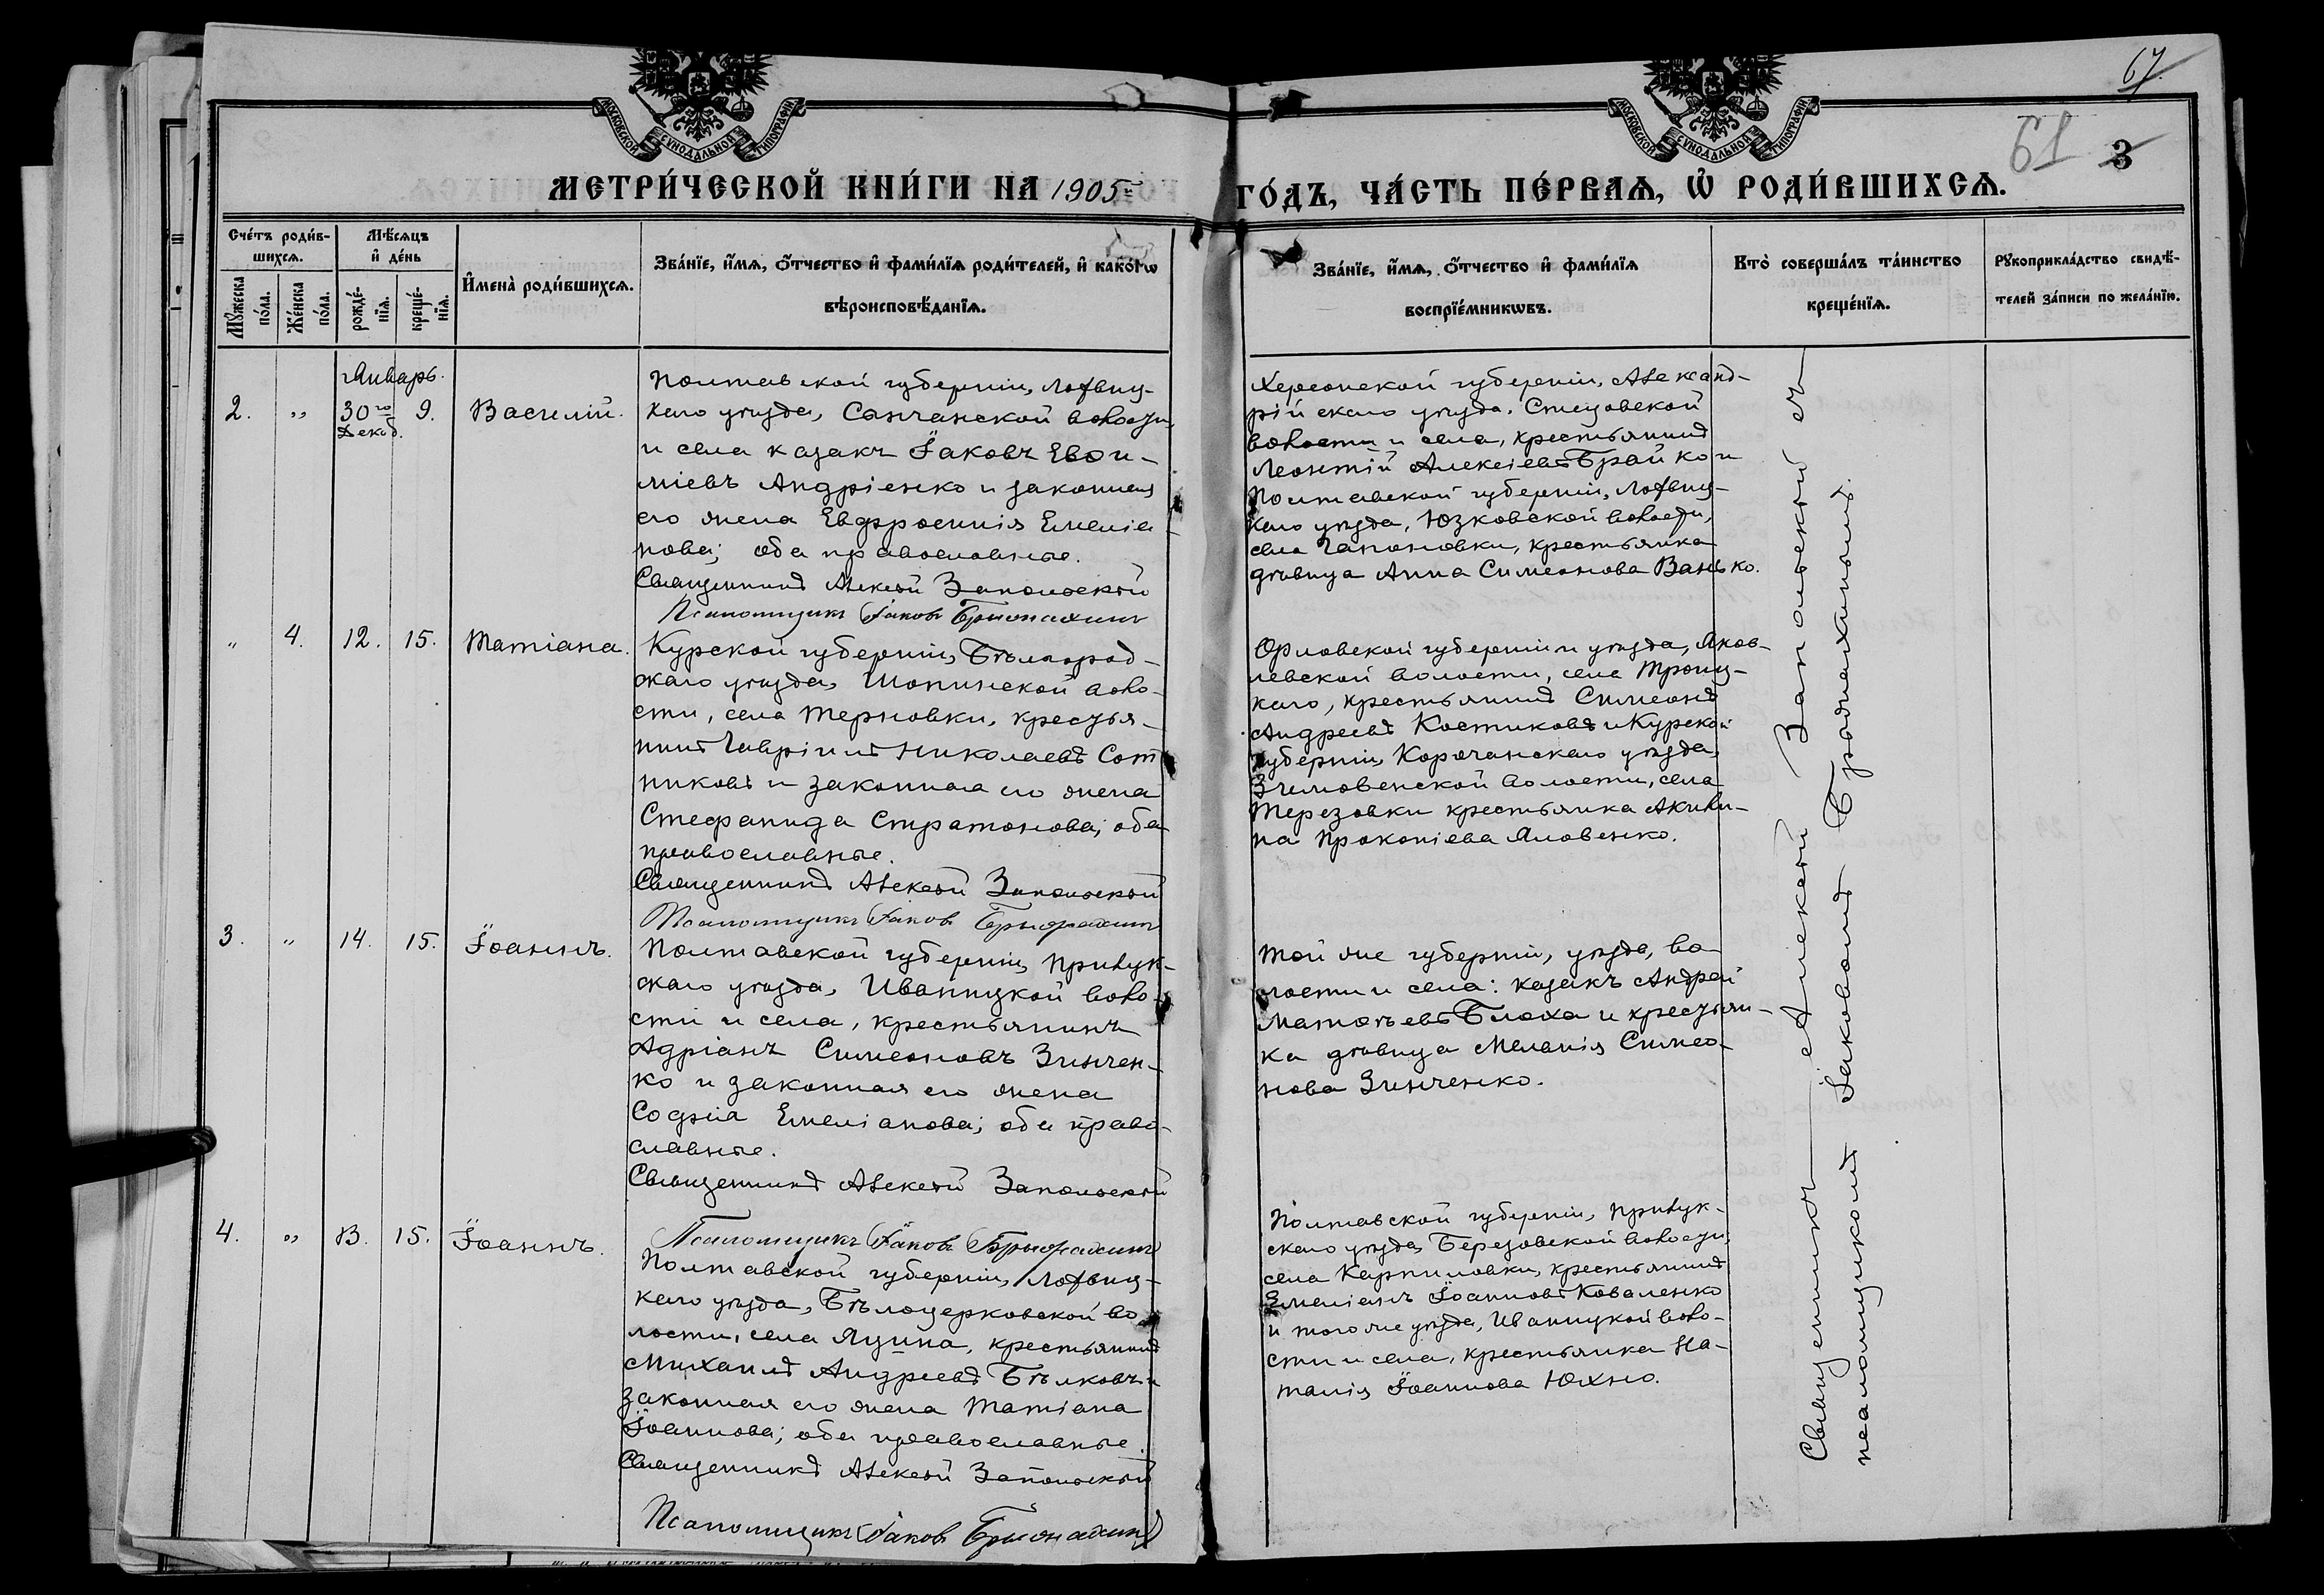 67.
61 3
МОСКОВСКОЙ СѴНОДАЛЬНОЙ ТИПОГРАФІИ
МОСКОВСКОЙ СѴНОДАЛЬНОЙ ТИПОГРАФІИ
МЕТРИ́ЧЕСКОЙ КНИ́ГИ НА 1905й ГО́ДЪ, ЧА́СТЬ ПЕ́РВАѦ, Ѡ҆ РОДИ́ВШИХСѦ.
Сче́тъ роди́в-
шихсѧ.
Мꙋ́жеска
по́ла.
Же́нска
по́ла.
Мѣ́сѧцъ
и҆ де́нь
рожде́-
нїѧ.
креще́-
нїѧ.
И҆мена̀ роди́вшихсѧ.
Зва́нїе, и҆́мѧ, ѻ҆́тчество и҆ фами́лїѧ роди́телей, и҆ како́гѡ
вѣроисповѣ́данїѧ.
Зва́нїе, и҆́мѧ, ѻ҆́тчество и҆ фами́лїѧ
воспрїе́мникѡвъ.
Кто̀ соверша́лъ та́инство
креще́нїѧ.
Рꙋкоприкла́дство свидѣ́-
телей за́писи по жела́нїю.
Январь.
2. „ 30го 9. Василій.
Декаб.
Полтавской губерніи, Лохвиц-
каго уѣзда, Сенчанской волости,
и села казакъ Іаковъ Евѳи-
міевъ Андріенко и законная
его жена Евфросинія Емеліа-
нова; оба православные.
Священникъ Алексѣй Запольскій
Псаломщикъ Іаковъ
Херсонской губерніи, Александ-
рійскаго уѣзда,
волости и села, крестьянинъ
Леонтій Алексіевъ Брайко и
Полтавской губерніи, Лохвиц-
каго уѣзда, Юзковской волости,
села Гапоновки, крестьянка
дѣвица Анна Симеонова Ванько.
„ 4. 12. 15. Татіана.
Курской губерніи, Бѣлгород-
скаго уѣзда, Шопинской воло-
сти, села Терновки, крестья-
нинъ Гавріилъ Николаевъ Сот
никовъ и законная его жена
Стефанида Стратонова; оба
православные.
Священникъ Алексѣй Запольскій
Псаломщикъ Іаковъ
Орловской губерніи и уѣзда, Яков-
левской волости, села Троиц-
каго, крестьянинъ Симеонъ
Андреевъ Костиковъ и Курской
губерніи, Корочанскаго уѣзда,
Зимовенской волости, села
Терезовки крестьянка Акили-
на Прокопіева Яловенко.
3. „ 14. 15. Іоаннъ.
Полтавской губерніи, Прилук-
скаго уѣзда, Иваницкой воло-
сти и села, крестьянинъ
Адріанъ Симеоновъ Зинчен-
ко и законная его жена
Софія Емеліанова; оба право-
славные.
Священникъ Алексѣй Запольскій
Псаломщикъ Іаковъ
Той же губерніи, уѣзда, во-
лости и села: казакъ Андрей
Матѳѣевъ Блоха и крестьян-
ка дѣвица Меланія Симео-
нова Зинченко.
4. „ 13. 15. Іоаннъ.
Полтавской губерніи, Лохвиц-
каго уѣзда, Бѣлоцерковской во
лости, села Яцина, крестьянинъ
Михаилъ Андреевъ Бѣлковъ и
законная его жена Татіана
Іоаннова; оба православные.
Священникъ Алексѣй Запольскій
Псаломщикъ Іаковъ
Полтавской губерніи, Прилук-
скаго уѣзда, Березовской волости,
села Карпиловки, крестьянинъ
Емеліанъ Іоанновъ Коваленко
и того же уѣзда, Иваницкой воло-
сти и села, крестьянка На-
талія Іоаннова Юхно.
Священникъ Алексѣй Запольскій съ
псаломщикомъ Іаковомъ